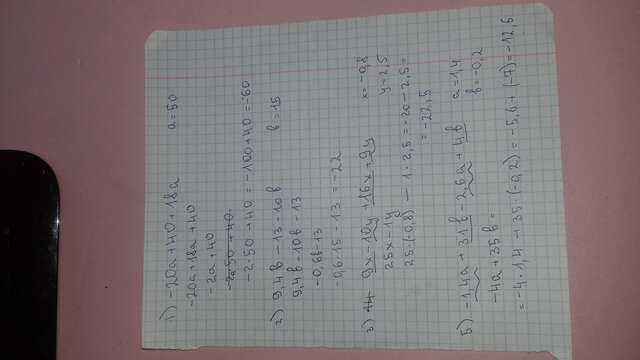 1) -20a+40+18a a=50
-20a+18a+40
-2a+40
-2·50+40
-2·50+40=-100+40=-60
2) 9,4в-13-10в в=15
9,4в-10в-13
-0,6в-13
-0,6·15-13=-22
3) 9x-10y+16x+9y x=-0,8
25x-1y y=2,5
25·(-0,8)-1·2,5=-20-2,5=
=-22,5
5) -1,4a+31в-2,6a+4в a=1,4
-4a+35в= в=-0,2
=-4·1,4+35·(-0,2)=-5,6+(-7)=-12,6